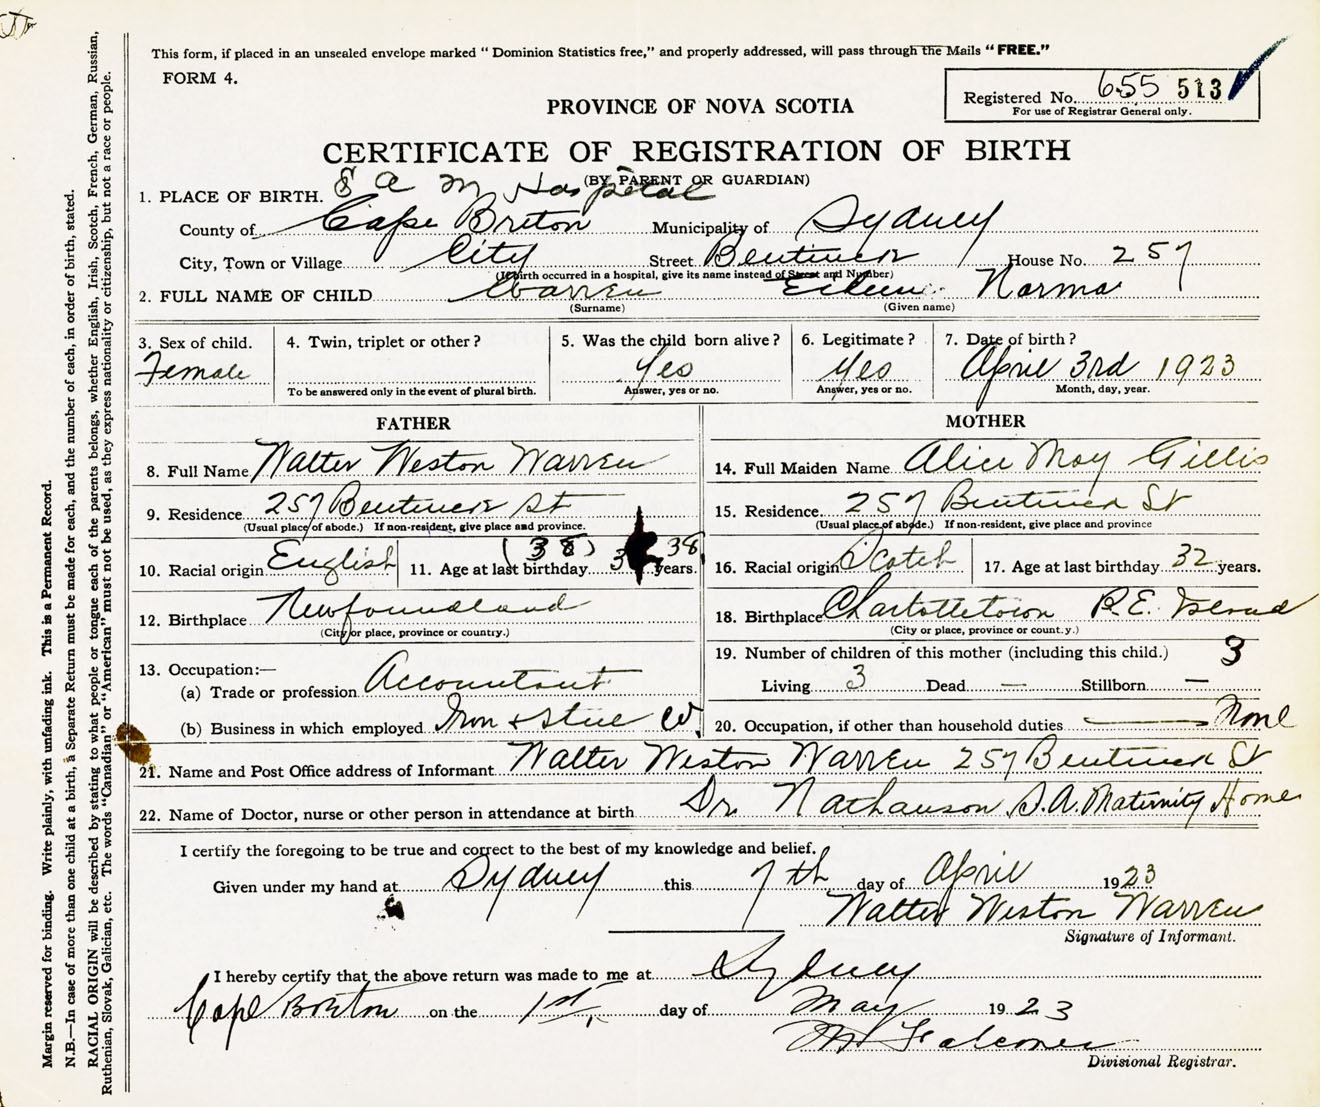 This form, if placed in an unsealed envelope marked "Dominion Statistics free," and properly addressed, will pass through the Mails "FREE."
FORM 4.
Registered No. 655 513
For use of Registrar General only.
PROVINCE OF NOVA SCOTIA
CERTIFICATE OF REGISTRATION OF BIRTH
(BY PARENT OR GUARDIAN)
S A M Hospital
1. PLACE OF BIRTH.
County of Cape Breton Municipality of Sydney
City, Town or Village City Street Bentinck House No. 257
(If birth occurred in a hospital, give its name instead of Street and Number)
2. FULL NAME OF CHILD Warren Eileen Norma
(Surname) (Given name)
3. Sex of child. Female
4. Twin, triplet or other?
To be answered only in the event of plural birth.
5. Was the child born alive? Yes
Answer, yes or no.
6. Legitimate? Yes
Answer, yes or no.
7. Date of birth? April 3rd 1923
Month, day, year.
FATHER
8. Full Name Walter Weston Warren
9. Residence 257 Bentinck St
(Usual place of abode.) If non-resident, give place and province.
10. Racial origin English
11. Age at last birthday (38) 3 38 years.
12. Birthplace Newfoundland
(City or place, province or country.)
13. Occupation:—
(a) Trade or profession Accountant
(b) Business in which employed Iron & Steel W.
MOTHER
14. Full Maiden Name Alice May Gillis
15. Residence 257 Bentinck St
(Usual place of abode.) If non-resident, give place and province
16. Racial origin Scotch
17. Age at last birthday 32 years.
18. Birthplace Charlottetown P.E. Island
(City or place, province or county.)
19. Number of children of this mother (including this child.) 3
Living 3 Dead — Stillborn —
20. Occupation, if other than household duties None
21. Name and Post Office address of Informant Walter Weston Warren 257 Bentinck St
22. Name of Doctor, nurse or other person in attendance at birth Dr. Nathanson S.A. Maternity Home
I certify the foregoing to be true and correct to the best of my knowledge and belief.
Given under my hand at Sydney this 7th day of April 1923
Walter Weston Warren
Signature of Informant.
I hereby certify that the above return was made to me at Sydney
Cape Breton on the 1st day of May 1923
Falconer
Divisional Registrar.
Margin reserved for binding. Write plainly, with unfading ink. This is a Permanent Record.
N.B.—In case of more than one child at a birth, a Separate Return must be made for each, and the number of each, in order of birth, stated.
RACIAL ORIGIN will be described by stating to what people or tongue each of the parents belongs, whether English, Irish, Scotch, French, German, Russian,
Ruthenian, Slovak, Galician, etc. The words "Canadian" or "American" must not be used, as they express nationality or citizenship, but not a race or people.